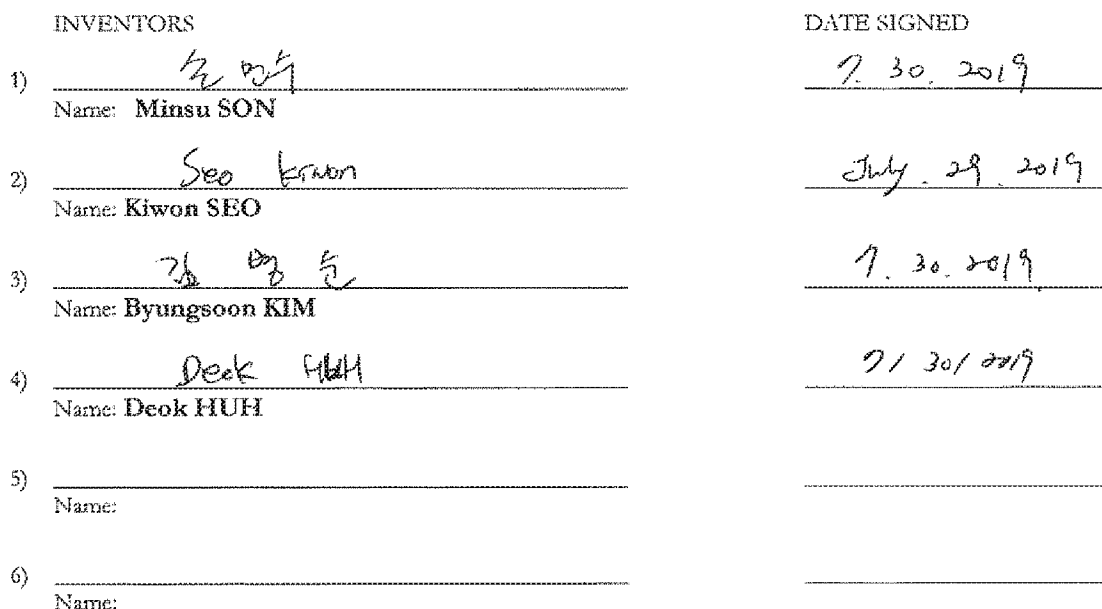 INVENTORS DATE SIGNED
1) 손 민수 7. 30. 2019
Name: Minsu SON
2) Seo kiwon July. 29. 2019
Name: Kiwon SEO
3) 김 병 순 7. 30. 2019
Name: Byungsoon KIM
4) Deok HUH 7/ 30/ 2019
Name: Deok HUH
5)
Name:
6)
Name: